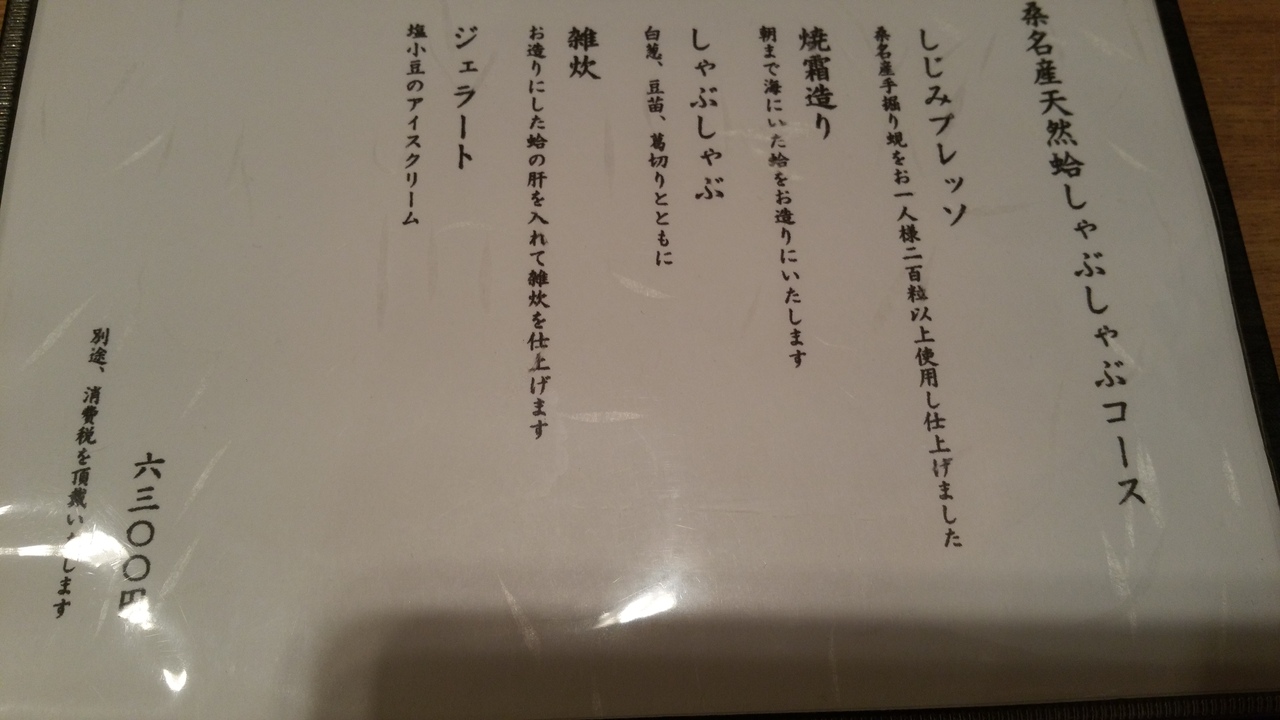 桑名産天然蛤しゃぶしゃぶコース
しじみプレッソ
桑名産手掘り蜆をお一人様二百粒以上使用し仕上げました
焼霜造り
朝まで海にいた蛤をお造りにいたします
しゃぶしゃぶ
白葱、豆苗、葛切りとともに
雑炊
お造りにした蛤の肝を入れて雑炊を仕上げます
ジェラート
塩小豆のアイスクリーム
六三〇〇円
別途、消費税を頂戴いたします